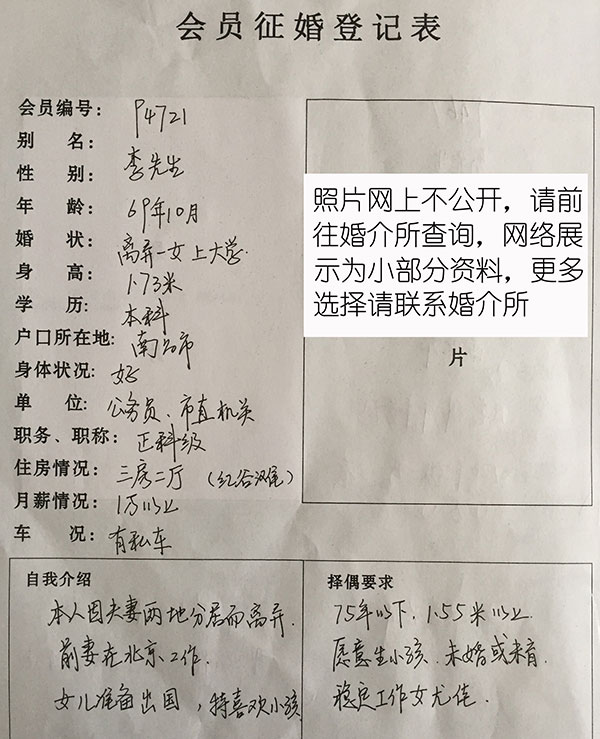 会员征婚登记表
会员编号: P4721
别 名: 李先生
性 别:
年 龄: 69年10月
婚 状: 离异一女上大学.
身 高: 1.73米
学 历: 本科
户口所在地: 南昌市
身体状况: 好
单 位: 公务员、市直机关
职务、职称: 正科级
住房情况: 三房二厅（红谷滩）
月薪情况: 1万以上
车 况: 有私车
照片网上不公开，请前
往婚介所查询，网络展
示为小部分资料，更多
选择请联系婚介所
片
自我介绍
本人因夫妻两地分居而离异.
前妻在北京工作.
女儿准备出国，特喜欢小孩
择偶要求
75年以下. 1.55米以上
愿意生小孩. 未婚或未育
稳定工作女尤佳.